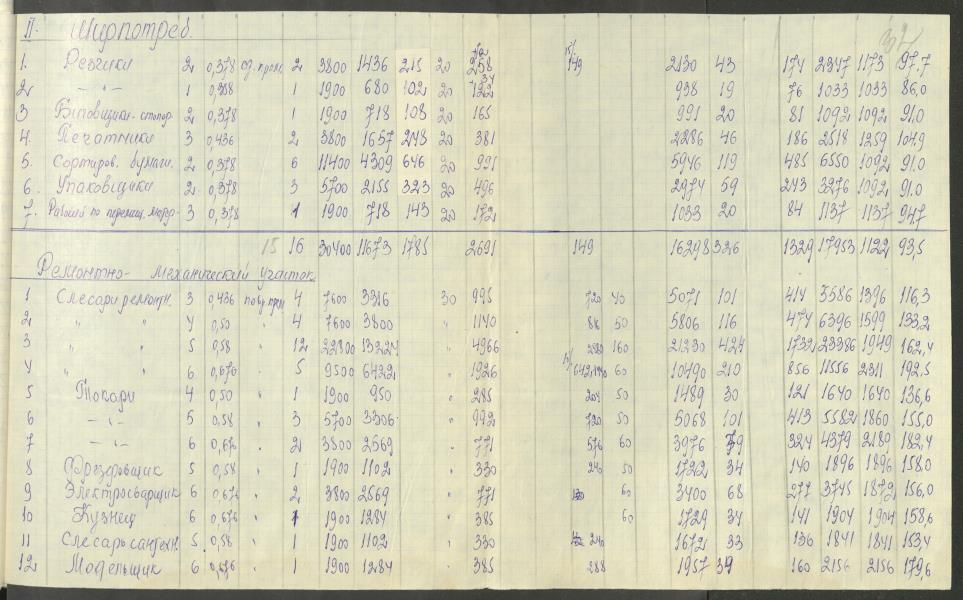 32
II. Ширпотреб.
1. Резчики 2 0,378 сд. прем 2 3800 1436 215 20 258 149 2130 43 174 2347 1173 97.7
2 —"— 1 0,358 1 1900 680 102 20 122 938 19 76 1033 1033 86,0
3 2 0,378 1 1900 718 108 20 165 991 20 81 1092 1092 91.0
4. Печатники 3 0,436 2 3800 1657 248 20 381 2286 46 186 2518 1259 104,9
5. Сортиров. бумаги. 2 0,378 6 11400 4309 646 20 991 5946 119 485 6550 1092 91.0
6. Упаковщики 2 0,378 3 5700 2155 323 20 496 2974 59 243 3276 1092 91.0
7. Рабочий по перемещ. матер. 3 0,378 1 1900 718 143 20 172 1033 20 84 1137 1137 94,7
15 16 30400 11673 1785 2691 149 16298 326 1329 17953 1122 93,5
Ремонтно- механический участок
1 Слесари ремонтн. 3 0,436 повр. прем 4 7600 3316 30 995 720 40 5071 101 414 5586 1396 116,3
2 " " 4 0,50 " 4 7600 3800 " 1140 816 50 5806 116 474 6396 1599 133,2
3 " " 5 0,58 " 12 22800 13224 " 4966 2880 160 21230 424 1732 23386 1949 162,4
4 " " 6 0,676 " 5 9500 6422 " 1926 60 10490 210 856 11556 2311 192,5
5 Токари 4 0,50 " 1 1900 950 " 285 204 50 1489 30 121 1640 1640 136,6
6 —"— 5 0,58 " 3 5700 3306 " 992 720 50 5068 101 413 5582 1860 155,0
7 —"— 6 0,676 " 2 3800 2569 " 771 576 60 3976 79 324 4379 2189 182,4
8 Фрезеровщик 5 0,58 " 1 1900 1102 " 330 240 50 1722 34 140 1896 1896 158,0
9 Электросварщик 6 0,676 " 2 3800 2569 " 771 60 3400 68 277 3745 1872 156,0
10 Кузнец 6 0,676 " 1 1900 1284 " 385 60 1729 34 141 1904 1904 158,6
11 Слесарь сантехн. 5 0,58 " 1 1900 1102 " 330 240 1672 33 136 1841 1841 153,4
12 Модельщик 6 0,676 " 1 1900 1284 " 385 288 1957 39 160 2156 2156 179,6